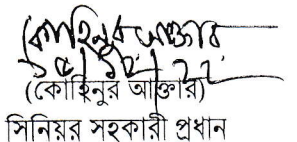 কোহিনুর আক্তার
১৫/১২/২২
(কোহিনুর আক্তার)
সিনিয়র সহকারী প্রধান